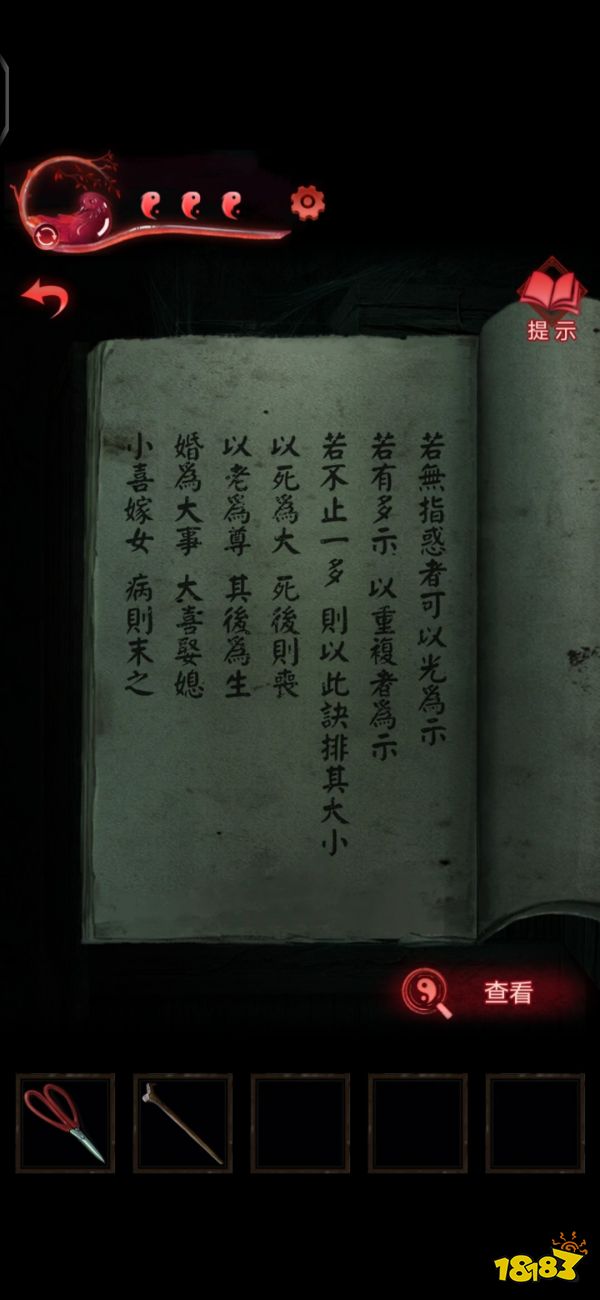 提示
若無指惑者可以光為示
若有多示 以重複者為示
若不止一多 則以此訣排其大小
以死為大 死後則喪
以老為尊 其後為生
婚為大事 大喜娶媳
小喜嫁女 病則末之
查看
18183